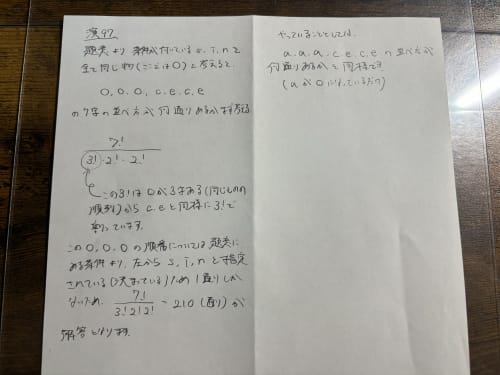 演97
題意より条件が付いているs,i,nを
全て同じ物(ここでは0)と考えると、
0,0,0,c.e.c.e
の7字の並べ方が何通りあるかを考える
7!
3!・2!・2!
この3!は0が3つある(同じものの
順列)からc,eと同様に3!で
割っています。
この0,0,0の順番については題意に
ある条件より、左からs,i,nと指定
されている(決まっている)ため1通りしか
ないため、7!/3!2!2! = 210(通り)が
解答となります。
やっていることとしては、
a.a.a.c.e.c.eの並べ方が
何通りあるかと同様です
(aが0になっているだけ)